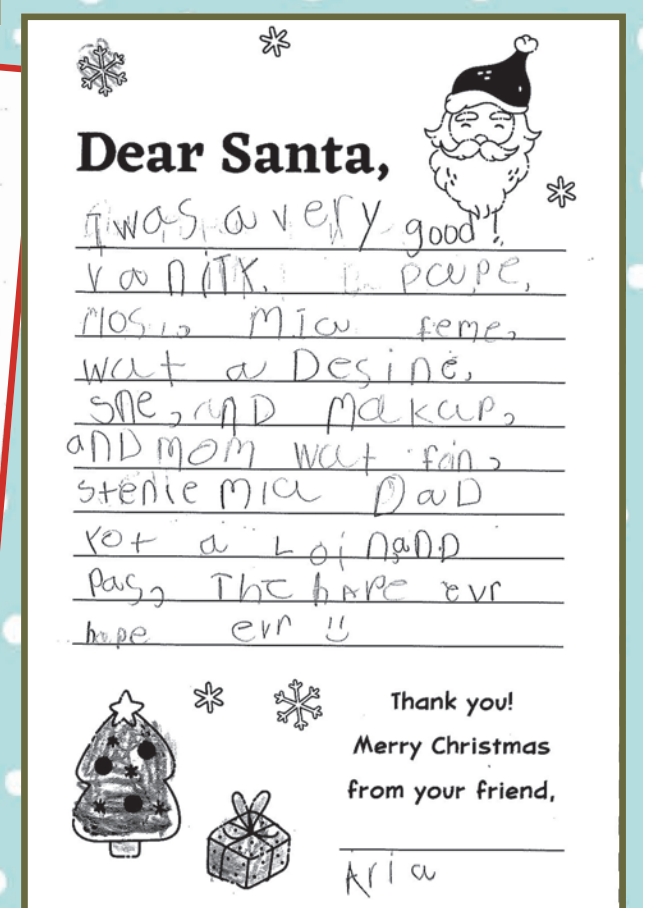 Dear Santa,
I was a very good!
vanitk. poupe,
Mos., Mia feme,
wat a Desine,
sne, and Makup,
and mom wat fan,
stenle mia DaD
rot a Loinand
Pas, The hape evr
hape evr
Thank you!
Merry Christmas
from your friend,
Aria